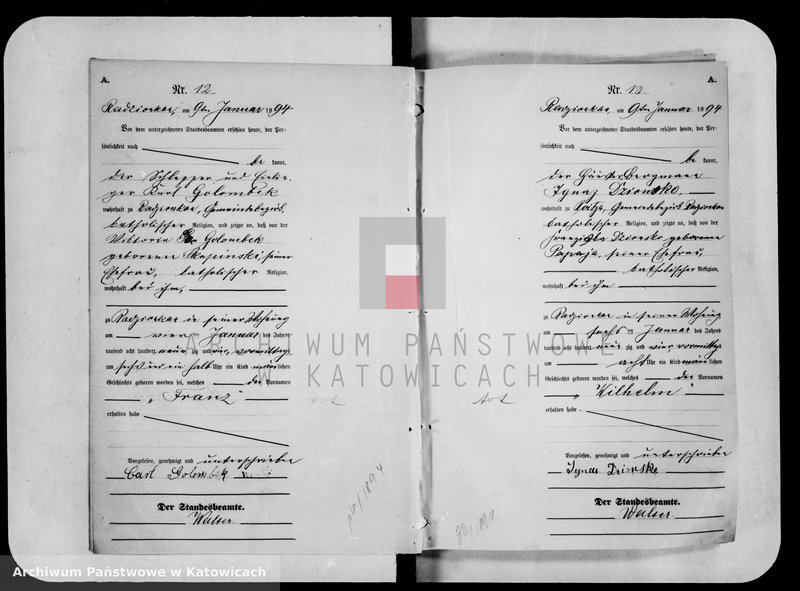 A.
Nr. 12
Radzionkau, am 9ten Januar 1894
Vor dem unterzeichneten Standesbeamten erschien heute, der Per-
sönlichkeit nach
be kannt,
der Schlepper und
ger Karl Golombek
wohnhaft zu Radzionkau, Gemeindebezirk,
katholischer Religion, und zeigte an, daß von der
Viktoria Golombek
geborenen seiner
Ehefrau, katholischer Religion,
wohnhaft bei ihm,
zu Radzionkau in seiner Wohnung
am vier Januar des Jahres
tausend acht hundert neun zig und vier, vormittags
um sechs und ein halb Uhr ein Kind männlichen
Geschlechts geboren worden sei, welches den Vornamen
„Franz"
erhalten habe.
Vorgelesen, genehmigt und unterschrieben
Carl Golombek
Der Standesbeamte.
Walser.
16/1894
A.
Nr. 13
Radzionkau, am 9ten Januar 1894
Vor dem unterzeichneten Standesbeamten erschien heute, der Per-
sönlichkeit nach
be kannt,
der Bergmann
Ignaz Dzionsko,
wohnhaft zu Gemeindebezirk Radzionkau
katholischer Religion, und zeigte an, daß von der
Dzionsko geborene
Papaja, seiner Ehefrau,
katholischer Religion,
wohnhaft bei ihm
zu Radzionkau in seiner Wohnung
am sechs Januar des Jahres
tausend acht hundert neun zig und vier vormittags
um acht Uhr ein Kind männlichen
Geschlechts geboren worden sei, welches den Vornamen
„Wilhelm"
erhalten habe.
Vorgelesen, genehmigt und unterschrieben
Ignas Dzionsko
Der Standesbeamte.
Walser.
tot
ARCHIWUM PAŃSTWOWE
W KATOWICACH
Archiwum Państwowe w Katowicach